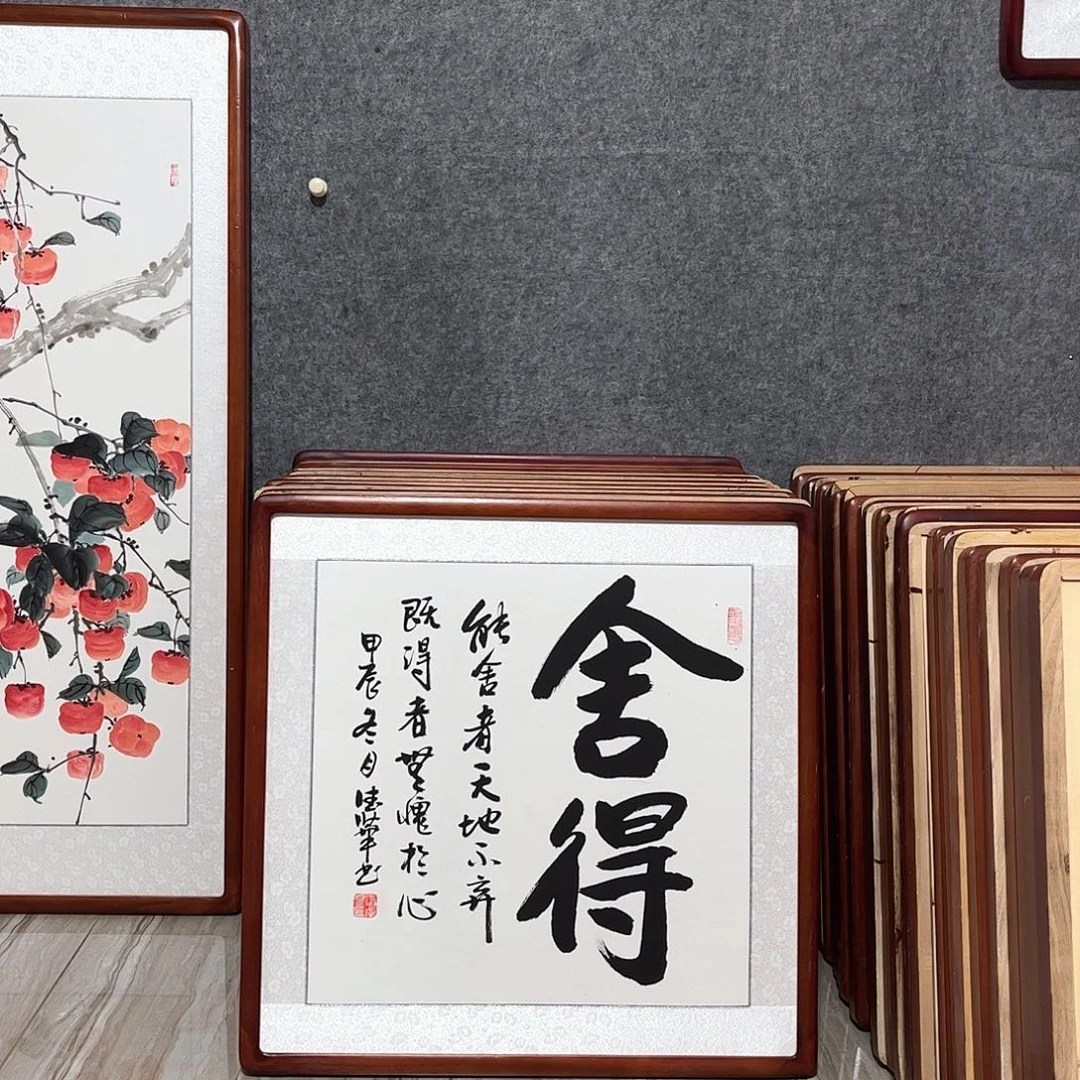 舍得
能舍者天地不弃
既得者無愧於心
甲辰冬月德華书